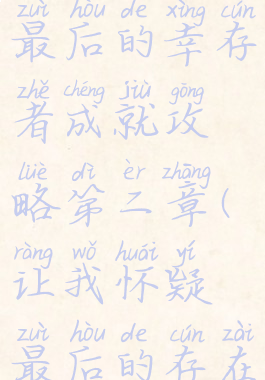 zuì hòu de xìng cún
最后的幸存
zhě chéng jiù gōng
者成就攻
lüè dì èr zhāng
略第二章(
ràng wǒ huái yí
让我怀疑
zuì hòu de cún zài
最后的存在